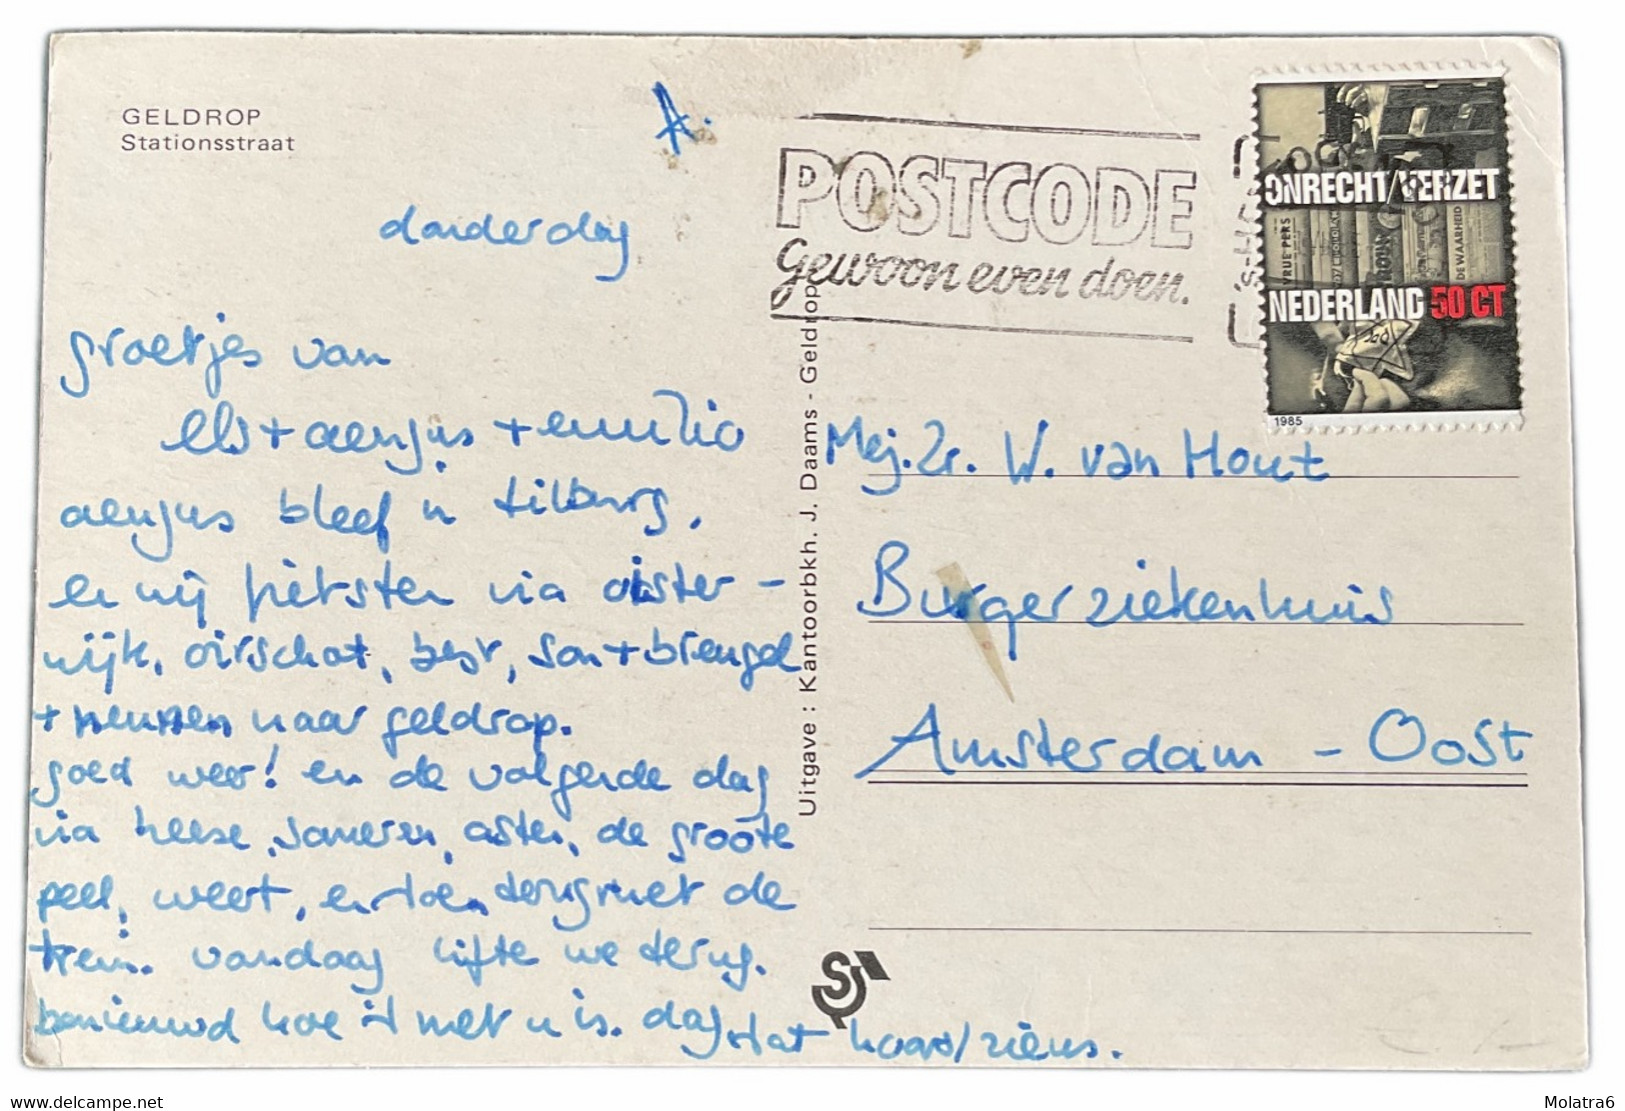 GELDROP
Stationsstraat
A.
POSTCODE
Gewoon even doen.
ONRECHT/VERZET
VRIJE PERS
DE WAARHEID
NEDERLAND 50 CT
1985
donderdag
groetjes van
els + aenjus + emilio
aenjus bleef in tilburg,
en wij fietsten via oister-
wijk, oirschot, best, son + breugel
+ neunen naar geldrop.
goed weer! en de volgende dag
via heeze, someren, asten, de groote
peel, weert, en toen terug met de
trein. vandaag liften we terug.
benieuwd hoe it met u is. dag, tot hoors/ziens.
Uitgave : Kantoorbkh. J. Daams - Geldrop
Mej. Zr. W. van Hout
Burgerziekenhuis
Amsterdam - Oost
delcampe.net
Molatra6